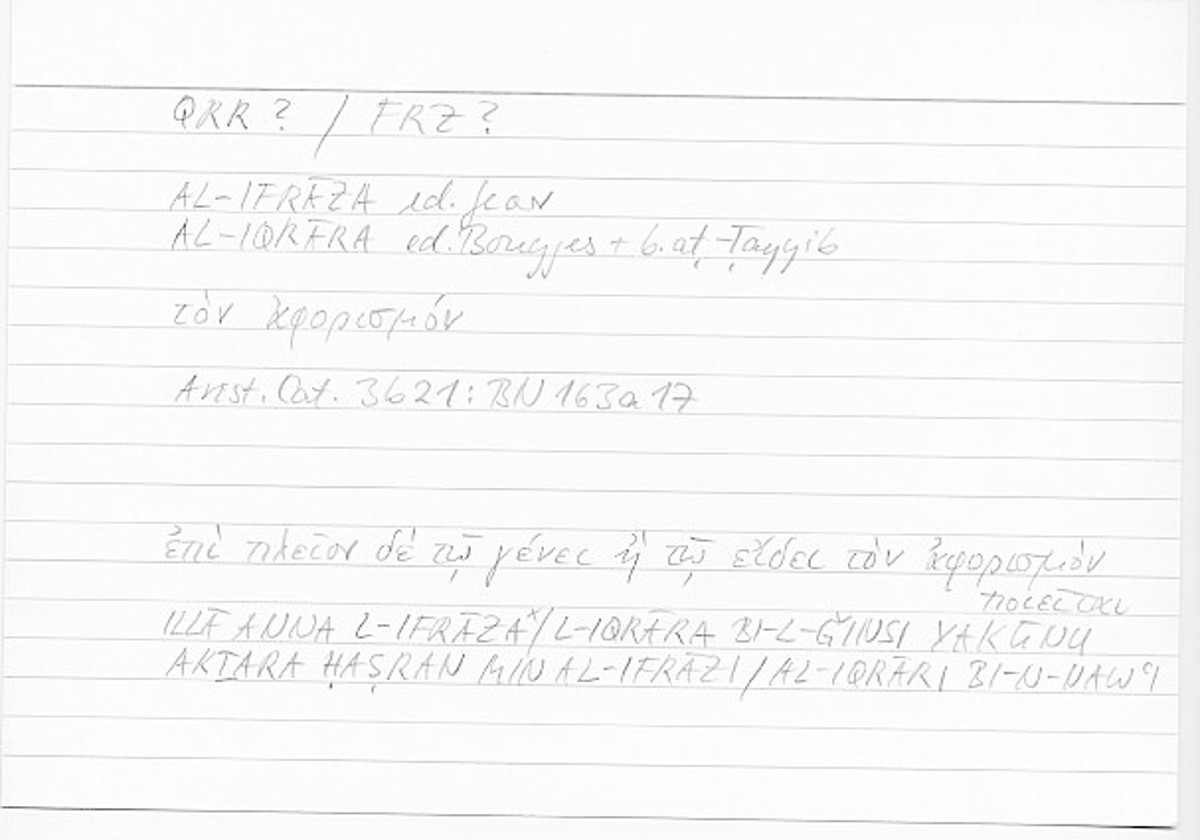 QRR ? / FRZ ?
AL-IFRĀZA ed. Jean
AL-IQRĀRA ed. Bouyges + b. aṭ-Ṭayyib
τὸν ἀφορισμόν
Arist. Cat. 3b21: BN 163a17
ἐπὶ πλεῖον δὲ τῷ γένει ἢ τῷ εἴδει τὸν ἀφορισμὸν
ποιεῖται
ILLĀ ANNA L-IFRĀZAˣ/L-IQRĀRA BI-L-ǦINSI YAKŪNU
AKṮARA ḤAṢRAN MIN AL-IFRĀZI/AL-IQRĀRI BI-N-NAWʿI